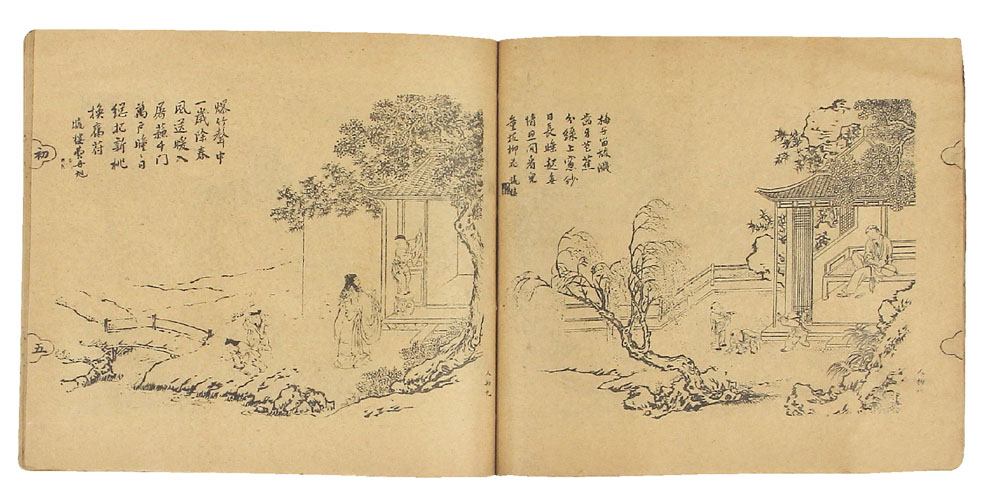 梅子留酸濺
齒牙芭蕉
分綠上窗紗
日長睡起無
情思閒看兒
童捉柳花
曉樓
爆竹聲中
一歲除春
風送暖入
屠蘇千門
萬戶曈々日
總把新桃
換舊符
曉樓費丹旭
初
五